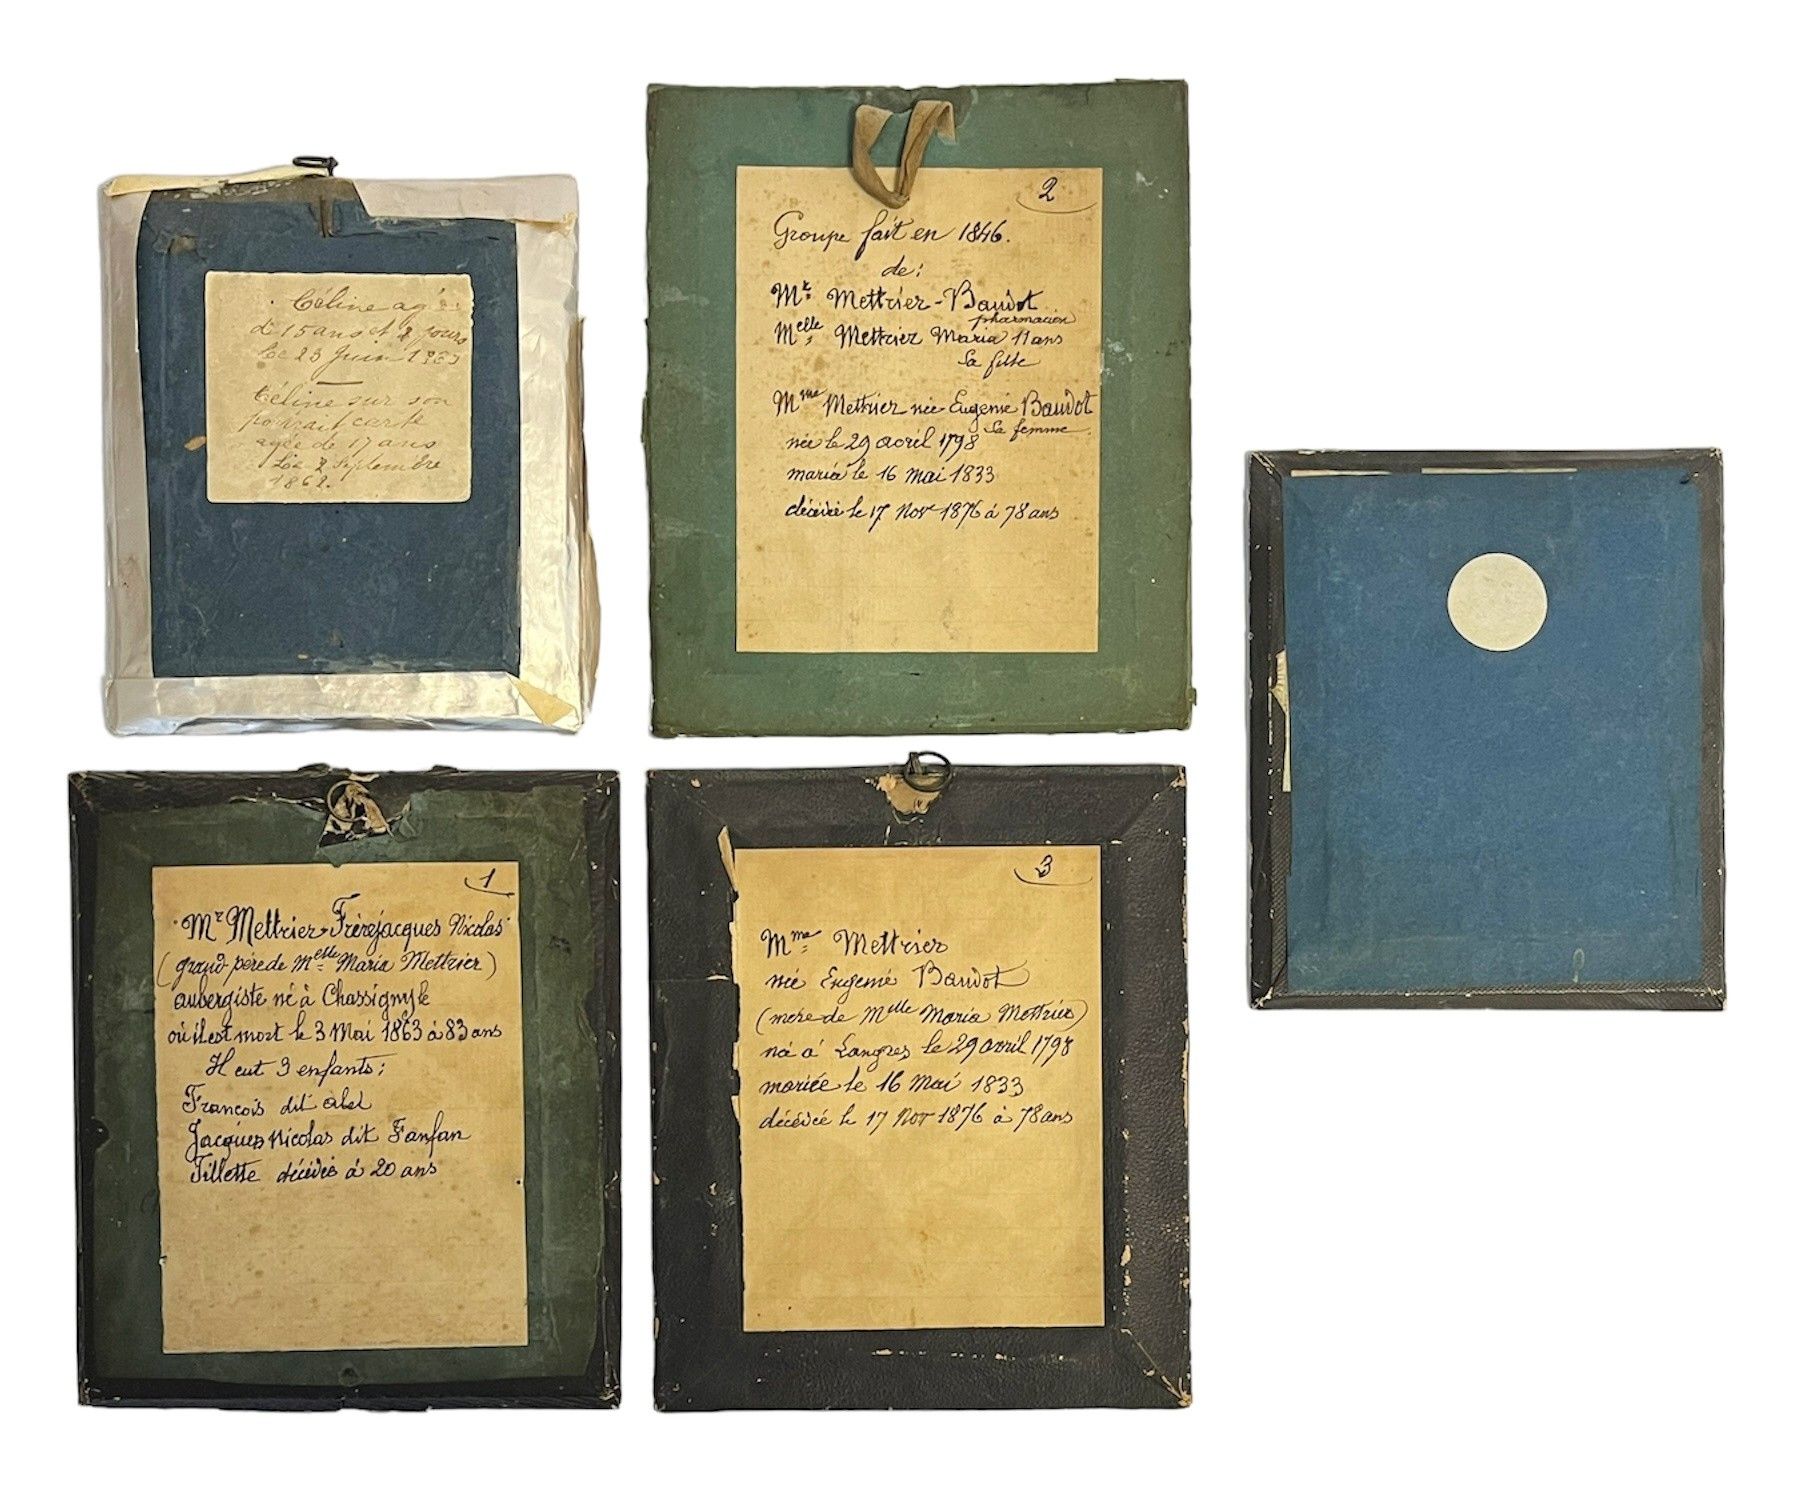 Céline agé
de 15 ans et 2 jours
le 23 Juin
Céline sur son
portrait carte
agée de 17 ans
Le 2 Septembre
1862.
2
Groupe fait en 1846.
de:
Mr Mettrier-Baudot
pharmacien
Melle Mettrier Maria 11 ans
Sa fille
Mme Mettrier née Eugenie Baudot
Sa femme
née le 29 avril 1798
mariée le 16 mai 1833
décédée le 17 Nov 1876 à 78 ans
1
Mr Mettrier-Frèrejacques Nicolas
(grand-père de Melle Maria Mettrier)
aubergiste né à Chassigny le
où il est mort le 3 Mai 1863 à 83 ans
Il eut 3 enfants:
Francois dit abel
Jacques Nicolas dit Fanfan
Fillette décédée à 20 ans
3
Mme Mettrier
née Eugenie Baudot
(mere de Melle Maria Mettrier)
né à Langres le 29 avril 1798
mariée le 16 Mai 1833
décédée le 17 Nov 1876 à 78 ans